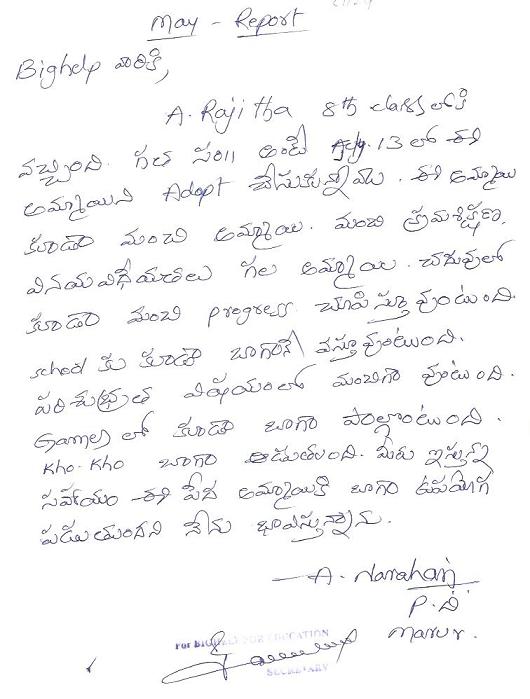 May - Report
Bighelp వారికి,
A. Rajitha 8th class లోకి
వచ్చింది. గత సం॥ అంటే Aug. 13 లో ఈ
అమ్మాయిని Adopt చేసుకున్నారు. ఈ అమ్మాయి
కూడా మంచి అమ్మాయి. మంచి క్రమశిక్షణ,
వినయ విధేయతలు గల అమ్మాయి. చదువులో
కూడా మంచి progress చూపిస్తూ వుంటుంది.
school కు కూడా బాగానే వస్తూ వుంటుంది.
పరిశుభ్రత విషయంలో మంచిగా వుంటుంది.
Games లో కూడా బాగా పాల్గొంటుంది.
Kho-Kho బాగా ఆడుతుంది. మీరు ఇస్తున్న
సహాయం ఈ పేద అమ్మాయికి బాగా ఉపయోగ
పడుతుందని నేను భావిస్తున్నాను.
A. Narahari
P.D
Marur.
For BIGHELP FOR EDUCATION
SECRETARY